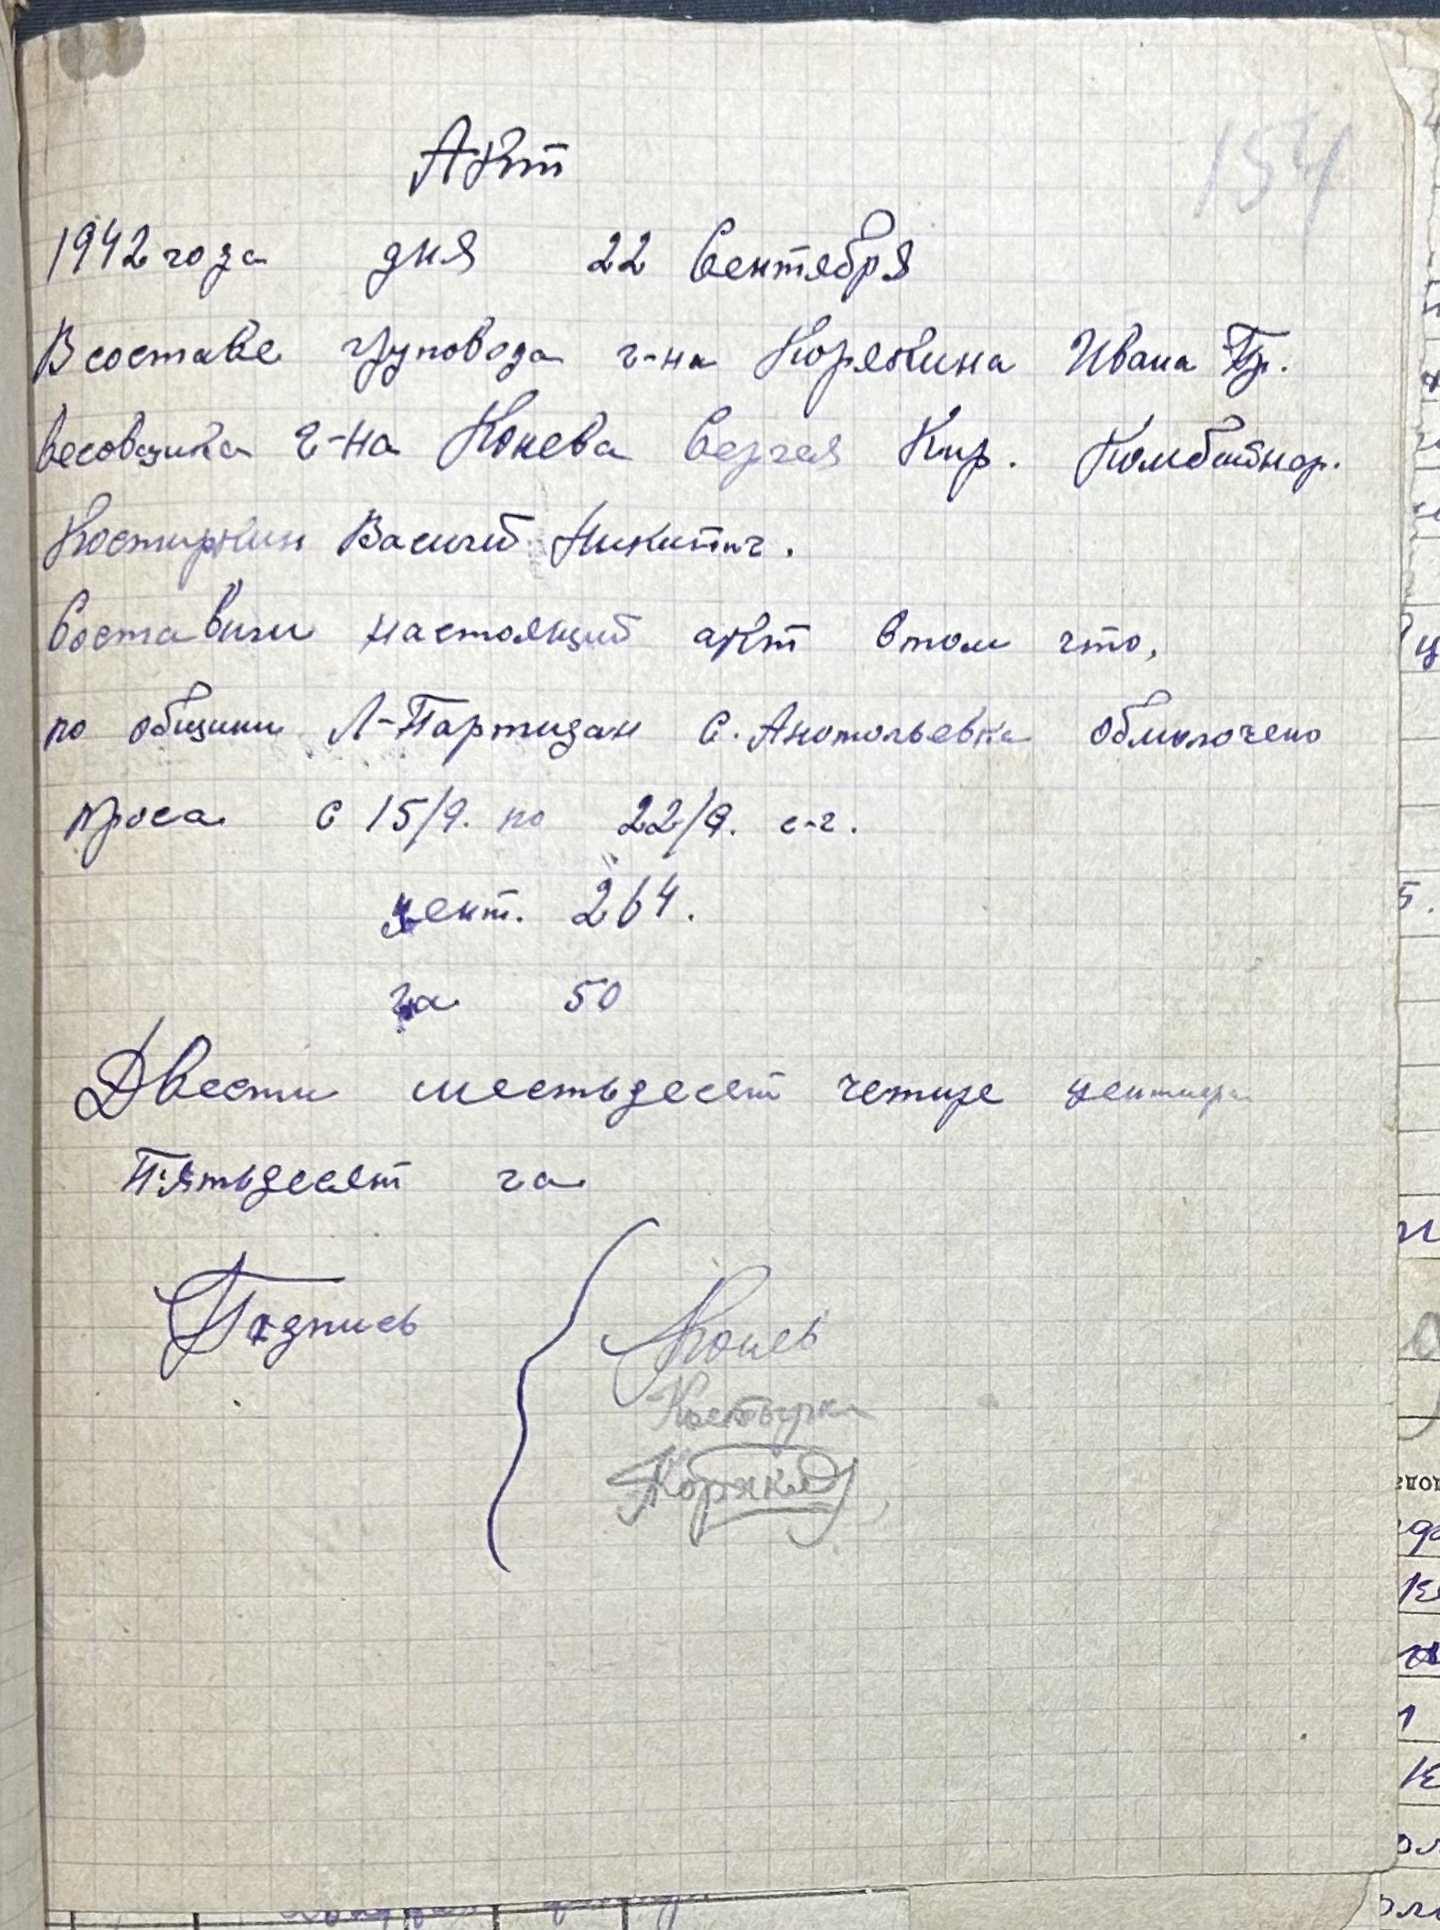 154
Акт
1942 года дня 22 Сентября
В составе груповода г-на Корякина Ивана Гр.
весовщика г-на Конева Сергея Кир. Комбайнер.
Костыркин Василий Никитич.
Составили настоящий акт в том что,
по общини Л-Партизан С. Анотольевка обмолочено
проса с 15/9. по 22/9. с-г.
цент. 264.
га 50
Двести шестьдесят четире центнера
Пятьдесят га
Подпись
Конев